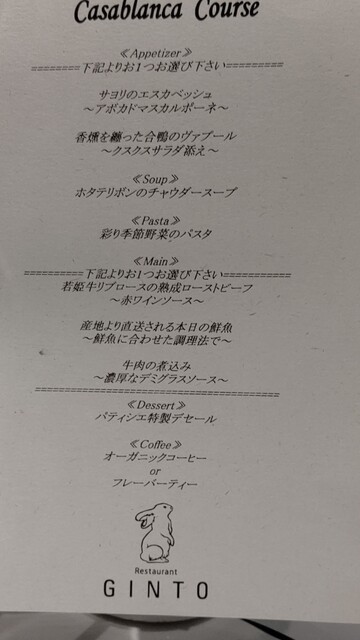 Casablanca Course
≪Appetizer≫
========下記よりお1つお選び下さい=========
サヨリのエスカベッシュ
～アボカドマスカルポーネ～
香燻を纏った合鴨のヴァプール
～クスクスサラダ添え～
≪Soup≫
ホタテリボンのチャウダースープ
≪Pasta≫
彩り季節野菜のパスタ
≪Main≫
==========下記よりお1つお選び下さい===========
若姫牛リブロースの熟成ローストビーフ
～赤ワインソース～
産地より直送される本日の鮮魚
～鮮魚に合わせた調理法で～
牛肉の煮込み
～濃厚なデミグラスソース～
========================================
≪Dessert≫
パティシエ特製デセール
≪Coffee≫
オーガニックコーヒー
or
フレーバーティー
Restaurant
GINTO